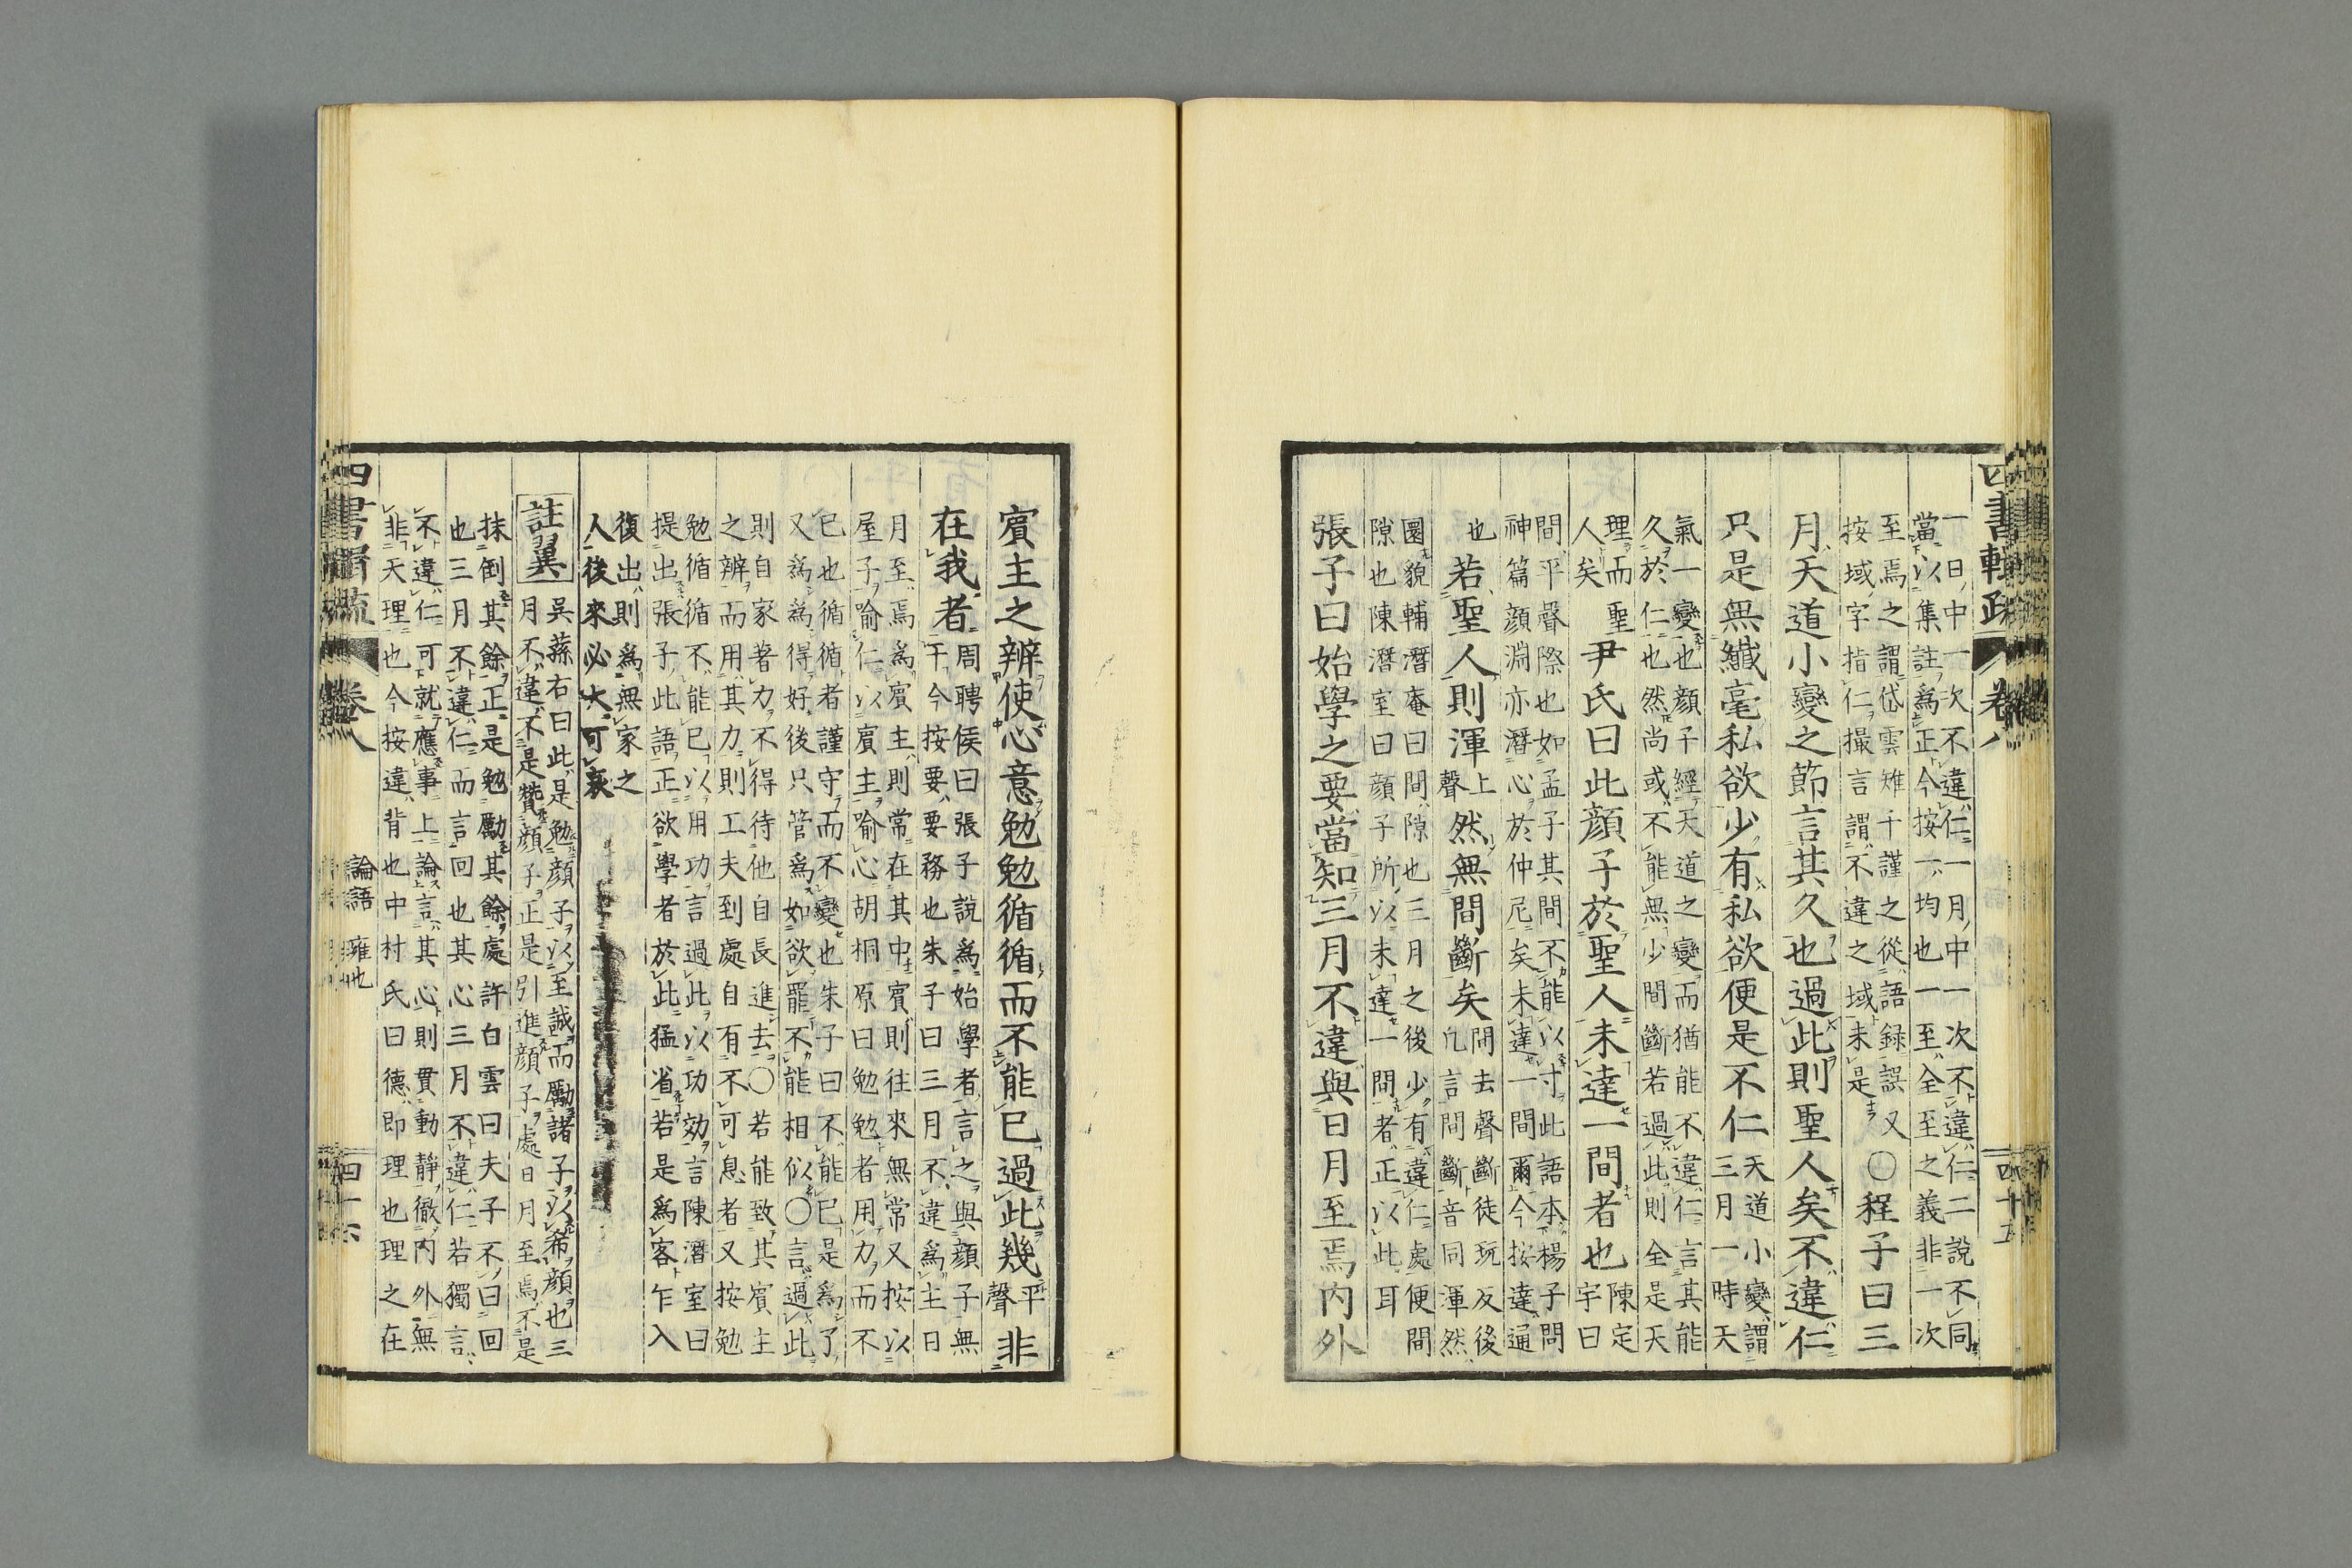 四書輯疏 卷八 四十五
一日中一次不違仁一月中一次不違仁二說不同
當以集註爲正今按一均也一至全至之義非一次
至焉之謂岱雲雉千謹之從語録誤又
按域字指仁撮言謂不違之域未是〇程子曰三
月天道小變之節言其久也過此則聖人矣不違仁
只是無纎毫私欲少有私欲便是不仁天道小變謂
三月一時天
氣一變也顏子經天道之變而猶能不違仁言其能
久於仁也然尚或不能無少間斷若過此則全是天
理而聖
人矣尹氏曰此顏子於聖人未達一間者也陳定
宇曰
間平聲際也如孟子其間不能以寸此語本楊子問
神篇顏淵亦潛心於仲尼矣未達一間爾今按達通
也若聖人則渾上
聲然無間斷矣間去聲斷徒玩反後
凡言間斷音同渾然
圜貌輔潛庵曰間隙也三月之後少有違仁處便間
隙也陳潛室曰顏子所以未達一間者正以此耳
張子曰始學之要當知三月不違與日月至焉内外
賓主之辨使心意勉勉循循而不能已過此幾平
聲非
在我者周聘侯曰張子說爲始學者言之與顏子無
干今按要要務也朱子曰三月不違爲主日
月至焉爲賓主則常在其中賓則往來無常又按以
屋子喻仁以賓主喻心胡桐原曰勉勉者用力而不
已也循循者謹守而不變也朱子曰不能已是爲了
又爲爲得好後只管爲如欲罷不能相似〇言過此
則自家著力不得待他自長進去〇若能致其賓主
之辨而用其力則工夫到處自有不可息者又按勉
勉循循不能已以用功言過此以功効言陳潛室曰
提出張子此語正欲學者於此猛省若是爲客乍入
復出則爲無家之
人後來必大可哀
註翼吳蓀右曰此是勉顏子以至誠而勵諸子以希顏也三
月不違不是贊顏子正是引進顏子處日月至焉不是
抹倒其餘正是勉勵其餘處許白雲曰夫子不曰回
也三月不違仁而言回也其心三月不違仁若獨言
不違仁可就應事上論言其心則貫動靜徹内外無
非天理也今按違背也中村氏曰德即理也理之在
四書輯疏 卷八 論語 雍也 四十六